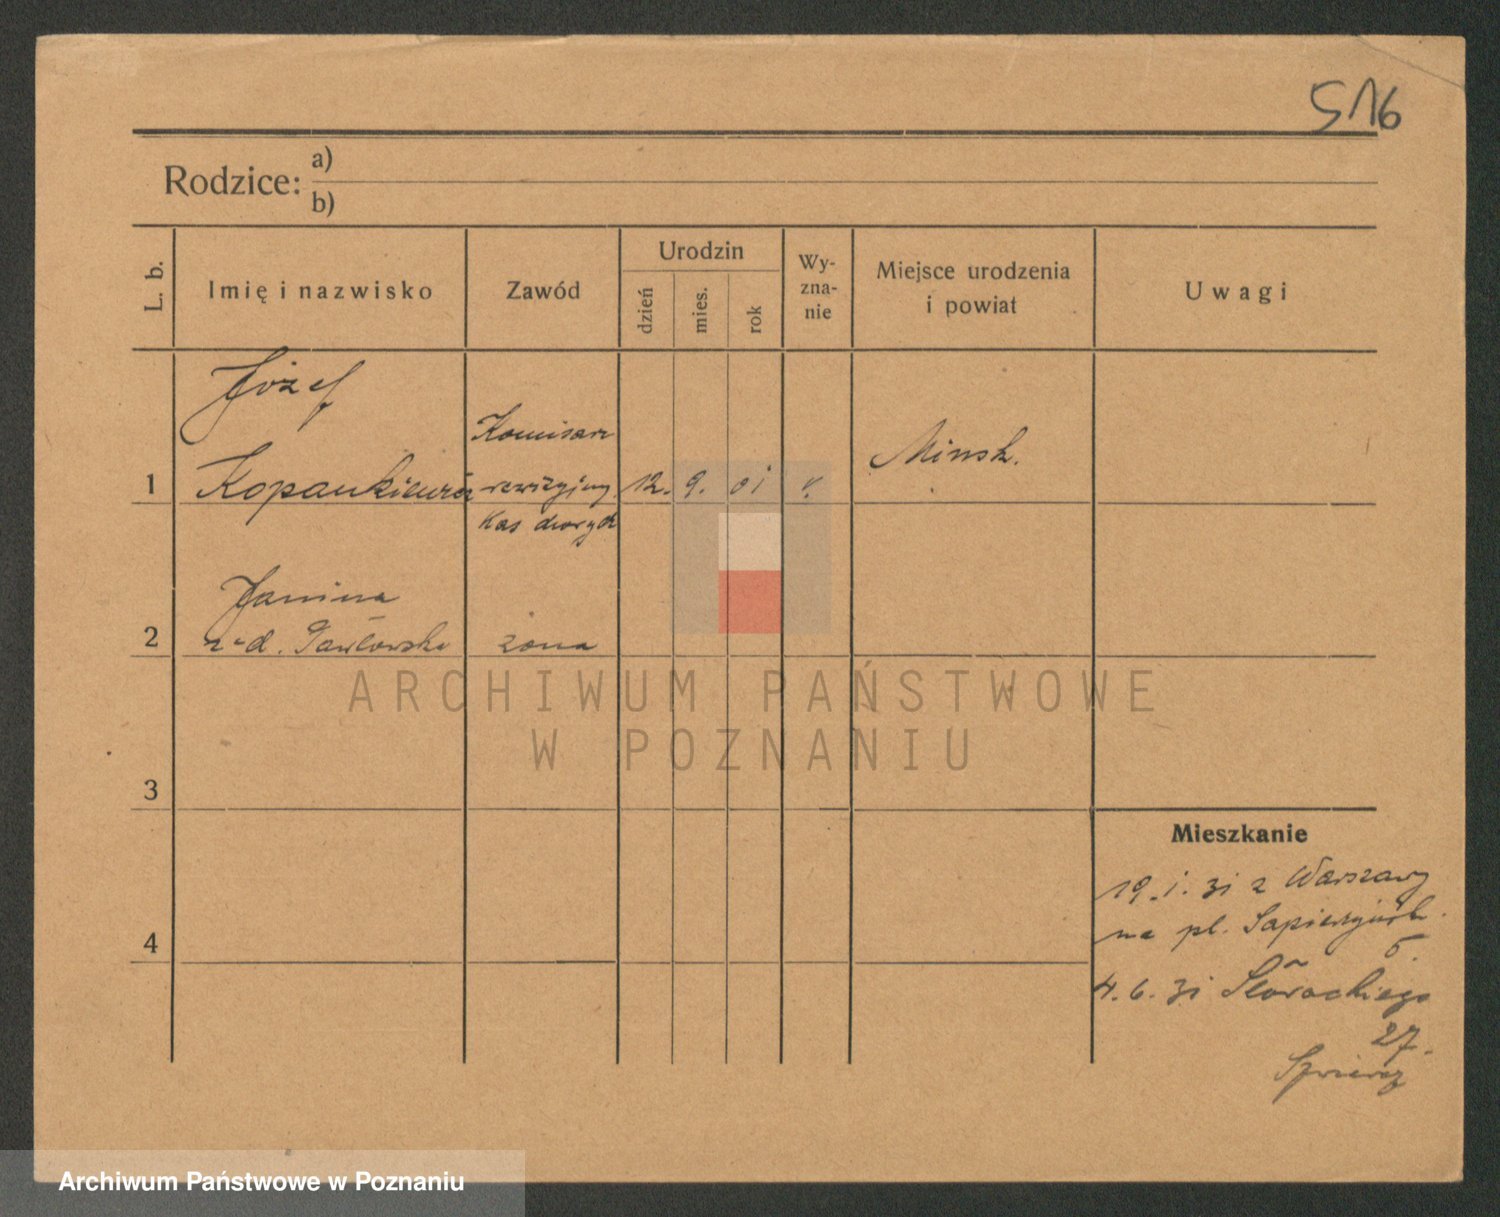 516
Rodzice: a)
b)
L. b.
Imię i nazwisko
Zawód
Urodzin
dzień
mies.
rok
Wy-
zna-
nie
Miejsce urodzenia
i powiat
Uwagi
1
Józef
Kopankiewicz
Komisarz
rewizyjny
Kas
12. 9. 01
Minsk.
2
Janina
Pawłowska
żona
3
4
Mieszkanie
19. 1. 31 z Warszawy
na pl. Sapieżyński
5.
4. 6. 31 Słowackiego
27.
ARCHIWUM PAŃSTWOWE
W POZNANIU
Archiwum Państwowe w Poznaniu